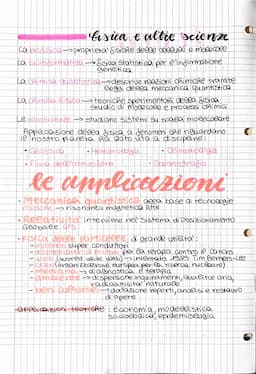 fisica e altre scienze
La biofisica → proprietà fisiche delle cellule e molecole
La bioinformatica → fisica statistica per l'informazione
genetica
La chimica quantistica → descrive reazioni chimiche tramite
leggi della meccanica quantistica
La chimica fisica → tecniche sperimentali della fisica
studio di molecole e processi chimici
Le nanoscienze → studiano sistemi su scala molecolare
Applicazione della fisica a fenomeni che riguardano
il nostro pianeta ha dato vita a discipline:
• Geofisica • Meteorologia • Climatologia
• Fisica dell'atmosfera • Oceanografia
le applicazioni
• Meccanica quantistica alla base di tecnologie
mediche → risonanza magnetica RMN
• Relatività interviene nel Sistema di Posizionamento
Globale GPS
• Fisica delle particelle di grande utilità:
- magneti super conduttori
- acceleratori di per la terapia contro il cancro
- web (world wide web) → inventato 1989 Tim Berners-Lee
- CERN (organizzazione europea per la ricerca nucleare)
- medicina → diagnostica e terapia
- ambiente → dispersione inquinamenti, qualità aria,
radioattività naturale
- beni culturali → datazione reperti, analisi e restauro
di opere
applicazioni teoriche: economia, modellistica
sociologica, epidemiologia